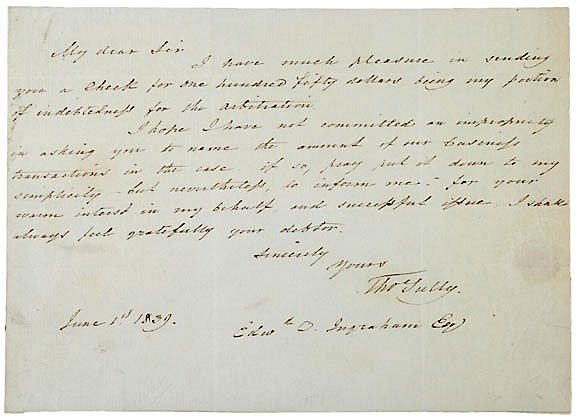 My dear Sir
I have much pleasure in sending
you a Check for one hundred fifty dollars being my portion
of indebtedness for the arbitration.
I hope I have not committed an impropriety
in asking you to name the amount of our business
transactions in the case if so, pray put it down to my
simplicity - but nevertheless, to inform me - for your
warm interest in my behalf, and successful issue, I shall
always feel gratefully your debtor.
Sincerely
Yours
Thos Sully.
June 1st 1839.
Edwd D. Ingraham Esq